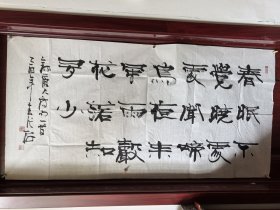 春眠不
覺曉處
處聞啼
鳥夜来
風雨聲
花落知
多少